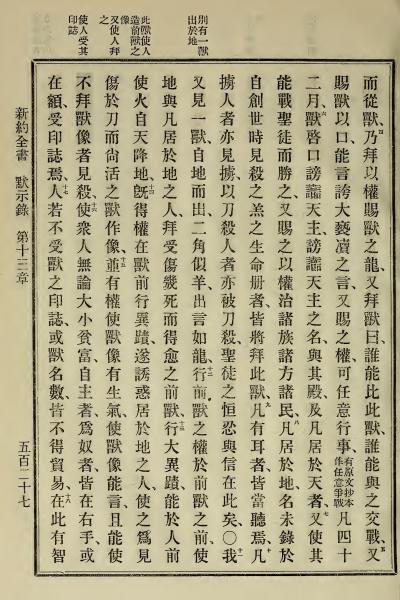 別有一獸
出於地
此獸使人
造前獸之
像
又使人拜
之
使人受其
印誌
而從獸、乃拜以權賜獸之龍、又拜獸曰、誰能比此獸、誰能與之交戰、五又
賜獸以口、能言誇大褻瀆之言、又賜之權、可任意行事、有原文抄本作任意爭戰凡四十
二月、六獸啓口謗讟天主、謗讟天主之名、與其殿、及凡居於天者、七又使其
能戰聖徒而勝之、又賜之以權、治諸族諸方諸民、八凡居於地、名未錄於
自創世時見殺之羔之生命册者、皆將拜此獸、九凡有耳者、皆當聽焉、十凡
擄人者、亦見擄、以刀殺人者、亦被刀殺、聖徒之恒忍與信在此矣、〇十一我
又見一獸、自地而出、二角似羊、出言如龍、十二行前獸之權於前獸之前、使
地與凡居於地之人、拜受傷幾死而得愈之前獸、十三行大異蹟、能於人前
使火自天降地、十四旣得權在獸前行異蹟、遂誘惑居於地之人、使之爲見
傷於刀而尙活之獸作像、十五並有權使獸像有生氣、使獸像能言、且能使
不拜獸像者見殺、十六使衆人無論大小貧富、自主者、爲奴者、皆在右手、或
在額、受印誌焉、十七人若不受獸之印誌、或獸名數、皆不得貿易、十八在此有智
新約全書　默示錄　第十三章　五百二十七